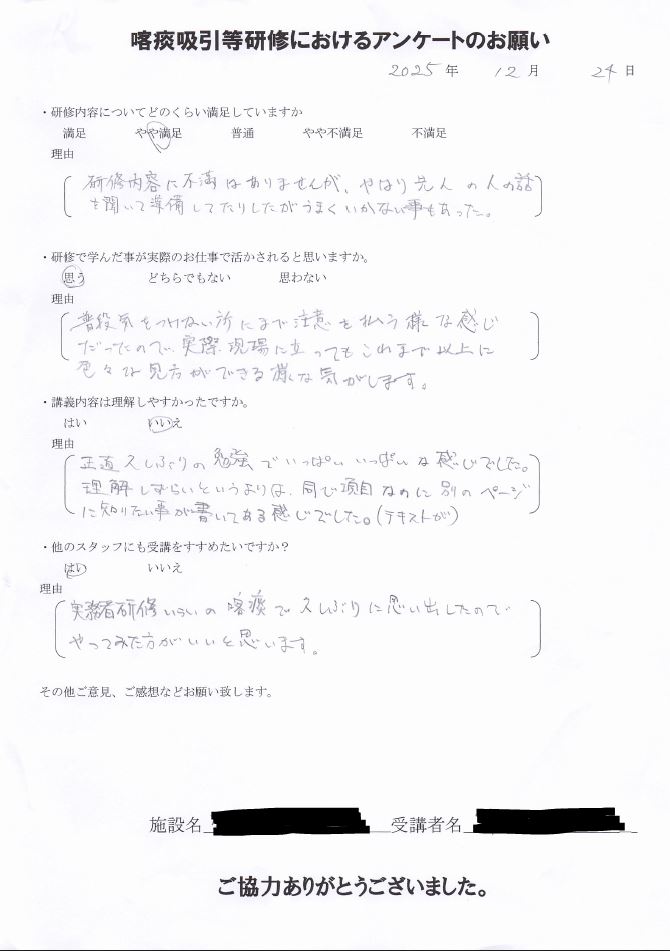 喀痰吸引等研修におけるアンケートのお願い
2025 年 12 月 24 日
・研修内容についてどのくらい満足していますか
満足 やや満足 普通 やや不満足 不満足
理由
研修内容に不満はありませんが、やはり先人の人の話
を聞いて準備してたりしたがうまくいかない事もあった。
・研修で学んだ事が実際のお仕事で活かされると思いますか。
思う どちらでもない 思わない
理由
普段気をつけない所にまで注意を払う様な感じ
だったので、実際、現場に立ってもこれまで以上に
色々な見方ができる様な気がします。
・講義内容は理解しやすかったですか。
はい いいえ
理由
正直久しぶりの勉強でいっぱいいっぱいな感じでした。
理解しずらいというよりは、同じ項目なのに別のページ
に知りたい事が書いてある感じでした。(テキストが)
・他のスタッフにも受講をすすめたいですか？
はい いいえ
理由
実務者研修いらいの喀痰で久しぶりに思い出したので
やってみた方がいいと思います。
その他ご意見、ご感想などお願い致します。
施設名 受講者名
ご協力ありがとうございました。